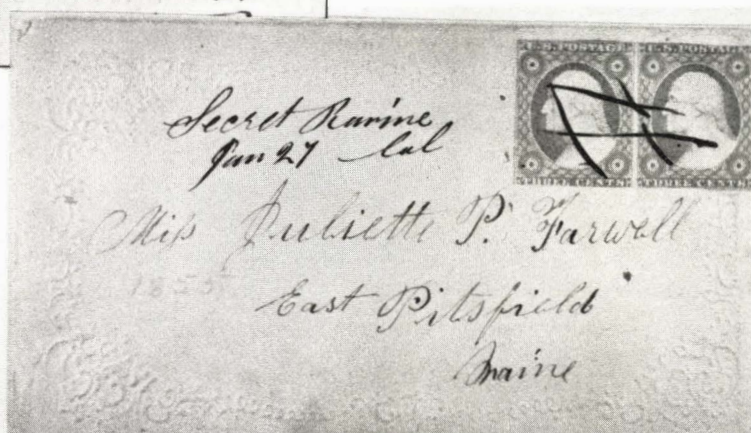 U.S. POSTAGE U.S. POSTAGE
THREE CENTS THREE CENTS
Secret Ravine
Jan 27 Cal
Miss Juliette P. Farwell
1855
East Pitsfield
Maine